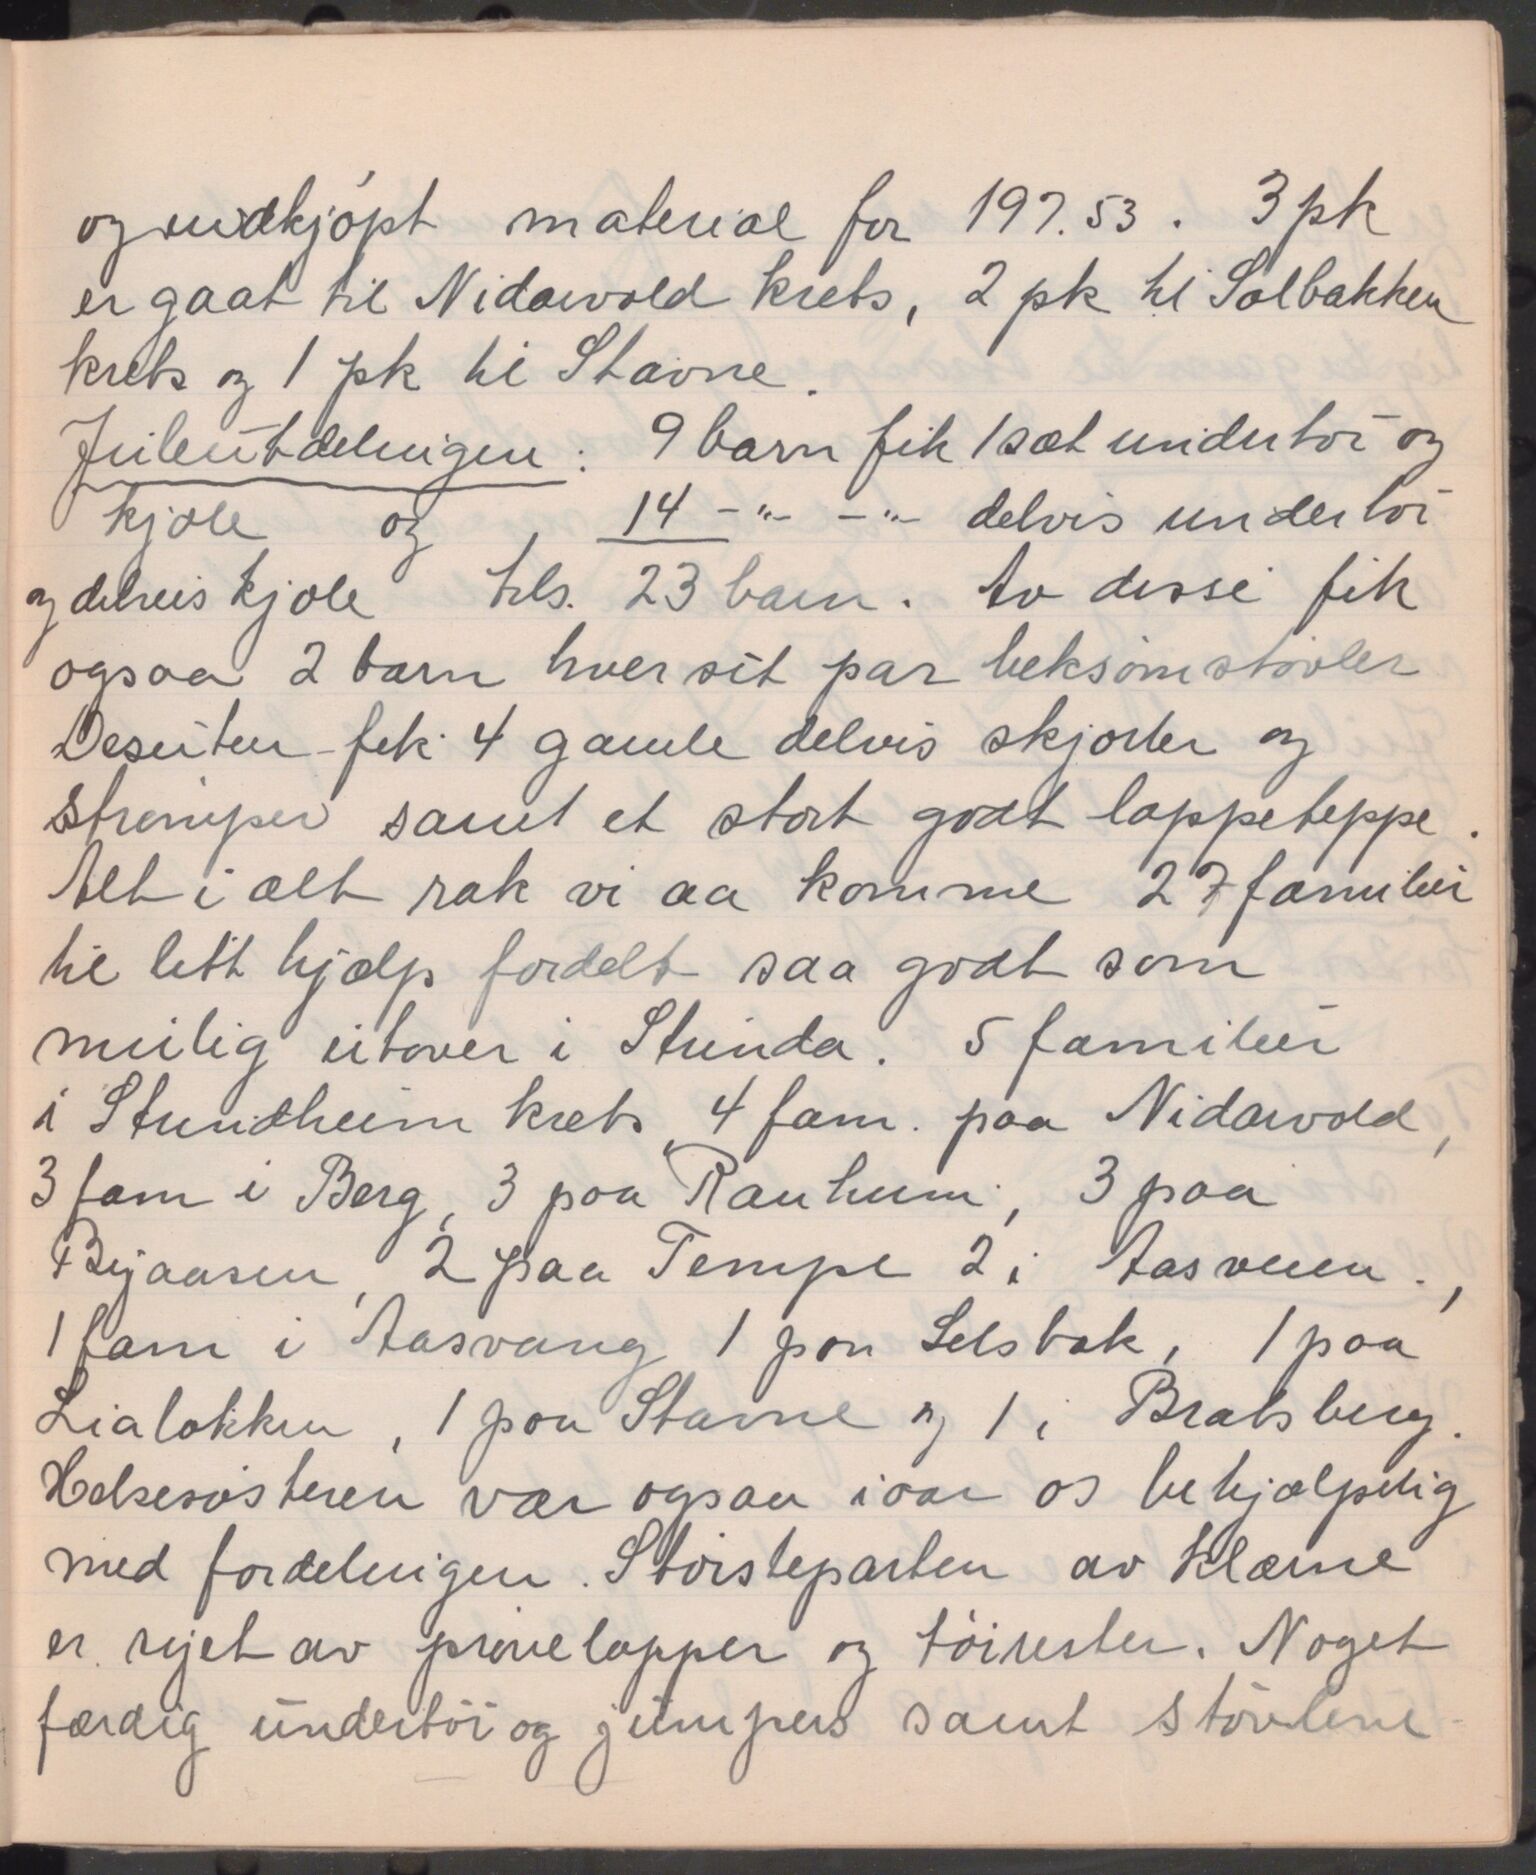 og indkjøpt material for 197.53. 3 pk
er gaat til Nidarvold krets, 2 pk til Solbakken
krets og 1 pk til Stavne.
Juleutdelingen: 9 barn fik 1 sæt undertøi og
kjole og 14 -"- -"- delvis undertøi
og delvis kjole tils. 23 barn. Av disse fik
ogsaa 2 barn hver sit par beksømstøvler
Desuten fik 4 gamle delvis skjorter og
strømper samt et stort godt lappeteppe.
Alt i alt rak vi aa komme 27 familier
til litt hjælp fordelt saa godt som
mulig utover i Strinda. 5 familier
i Strindheim krets, 4 fam. paa Nidarvold,
3 fam i Berg, 3 paa Ranheim, 3 paa
Byaasen, 2 paa Tempe 2 i Aasveien.,
1 fam i Aasvang 1 paa Selsbak, 1 paa
Lialøkken, 1 paa Stavne og 1 i Bratsberg.
Helsesøsteren var ogsaa iaar os behjælpelig
med fordelingen. Størsteparten av klærne
er syet av prøvelapper og tøirester. Noget
færdig undertøi og jumpers samt støvlene